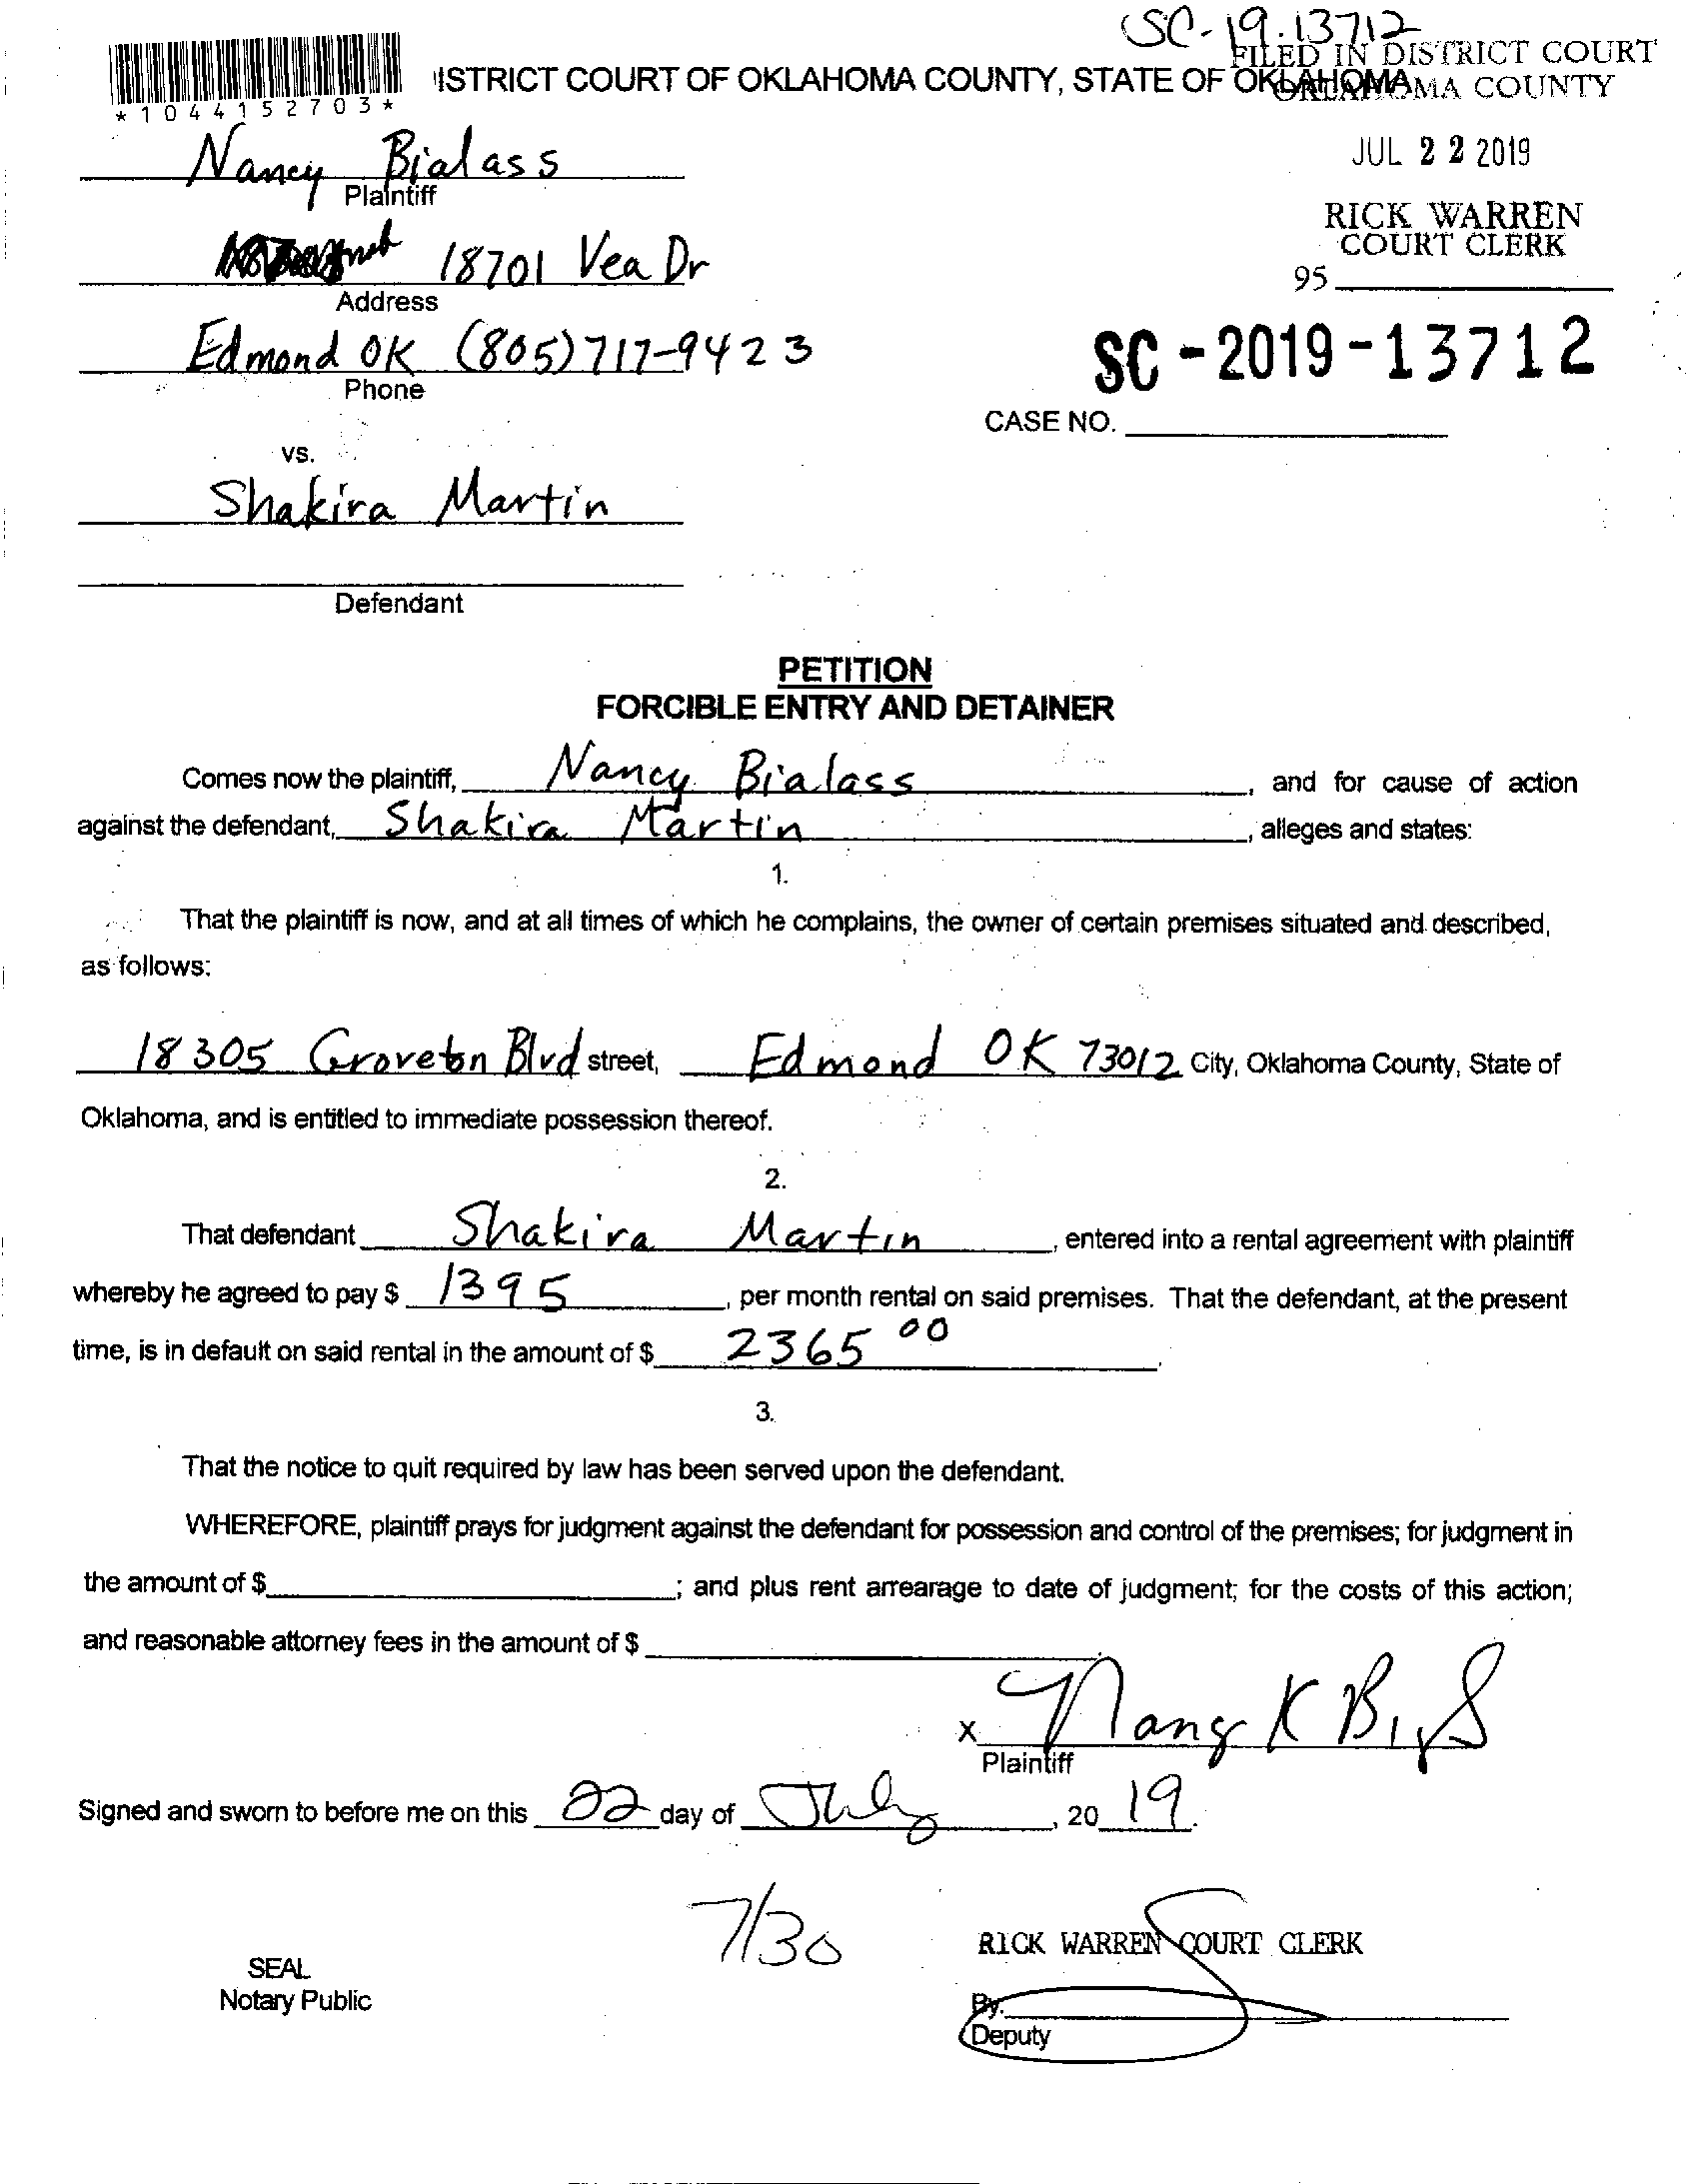 SC-19-13712
FILED IN DISTRICT COURT
ISTRICT COURT OF OKLAHOMA COUNTY, STATE OF OKLAHOMA
OKLAHOMA COUNTY
*1044152703*
JUL 22 2019
Nancy Bialass
Plaintiff
RICK WARREN
COURT CLERK
18701 Vea Dr
95
Address
Edmond OK (805)717-9423
Phone
SC-2019-13712
CASE NO.
vs.
Shakira Martin
Defendant
PETITION
FORCIBLE ENTRY AND DETAINER
Comes now the plaintiff, Nancy Bialass, and for cause of action
against the defendant, Shakira Martin, alleges and states:
1.
That the plaintiff is now, and at all times of which he complains, the owner of certain premises situated and described,
as follows:
18305 Groveton Blvd street, Edmond OK 73012 City, Oklahoma County, State of
Oklahoma, and is entitled to immediate possession thereof.
2.
That defendant Shakira Martin, entered into a rental agreement with plaintiff
whereby he agreed to pay $ 1395, per month rental on said premises. That the defendant, at the present
time, is in default on said rental in the amount of $ 2365 00.
3.
That the notice to quit required by law has been served upon the defendant.
WHEREFORE, plaintiff prays for judgment against the defendant for possession and control of the premises; for judgment in
the amount of $ ; and plus rent arrearage to date of judgment; for the costs of this action;
and reasonable attorney fees in the amount of $
X
Plaintiff
Signed and sworn to before me on this 22 day of July, 20 19.
7/30
RICK WARREN COURT CLERK
SEAL
Notary Public
By.
Deputy